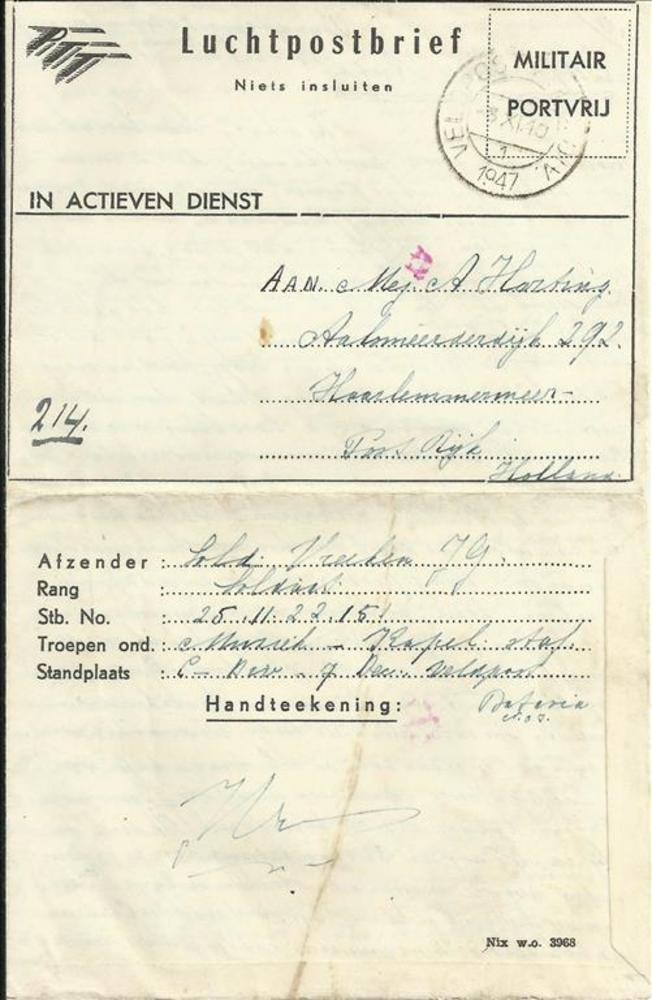 PTT
Luchtpostbrief
Niets insluiten
MILITAIR
PORTVRIJ
1
1947
IN ACTIEVEN DIENST
AAN Mej. A Harting
Aalsmeerderdijk 292.
Haarlemmermeer-
214.
Post Rijk
Holland.
Afzender : Sold.
Rang : Soldaat
Stb. No. : 25.11.22.151
Troepen ond. : Muziek - Kapel staf.
Standplaats : C- Div. 7 Dec. veldpost
Handteekening: Batavia
Nix w.o. 3968